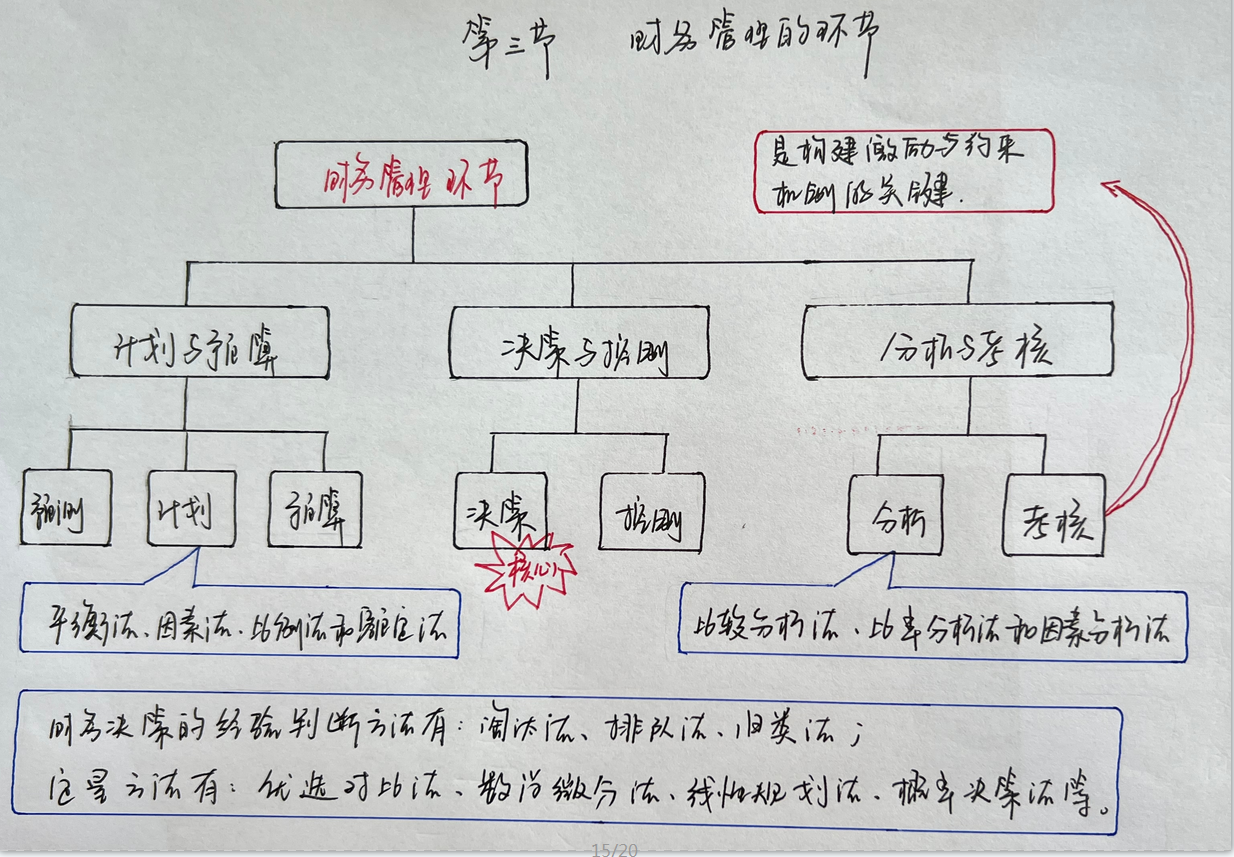 第三节 财务管理的环节
财务管理环节
是构建激励与约束
机制的关键.
计划与预算
决策与控制
分析与考核
预测
计划
预算
决策
控制
分析
考核
核心
平衡法、因素法、比例法和定法
比较分析法、比率分析法和因素分析法
财务决策的经验判断方法有：淘汰法、排队法、归类法；
定量方法有：优选对比法、数学微分法、线性规划法、概率决策法等。
15/20